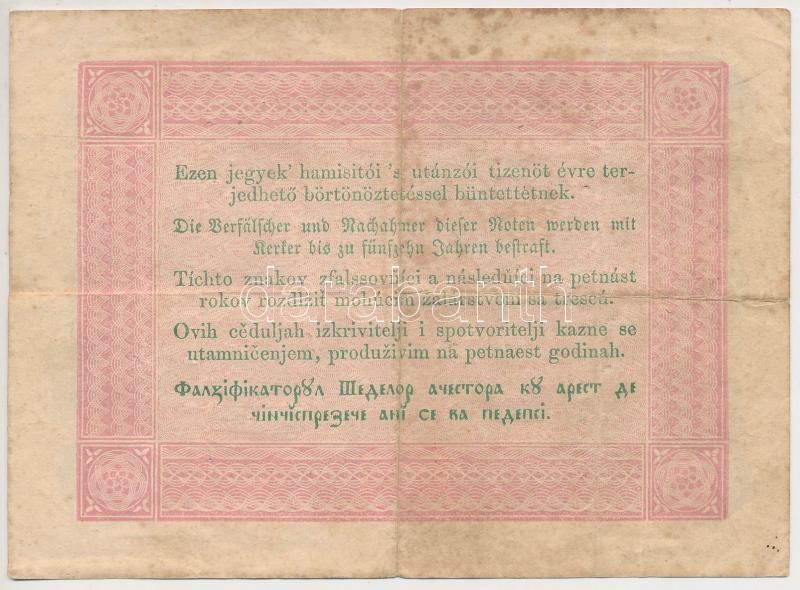 Ezen jegyek' hamisitói 's utánzói tizenöt évre ter-
jedhető börtönöztetéssel büntettétnek.
Die Verfälscher und Nachahmer dieser Noten werden mit
Kerker bis zu fünfzehn Jahren bestraft.
Tíchto znakov zfalssovníci a následňíci na petnást
rokov rozdlžit mohúcim žalárstvom sa trescú.
darabanth
Ovih cěduljah izkrivitelji i spotvoritelji kazne se
utamničenjem, produživim na petnaest godinah.
Фалꙋіфікаторꙋл Шеделор ачестора кꙋ арест де
чінчіспрезече ані се ва педепсі.